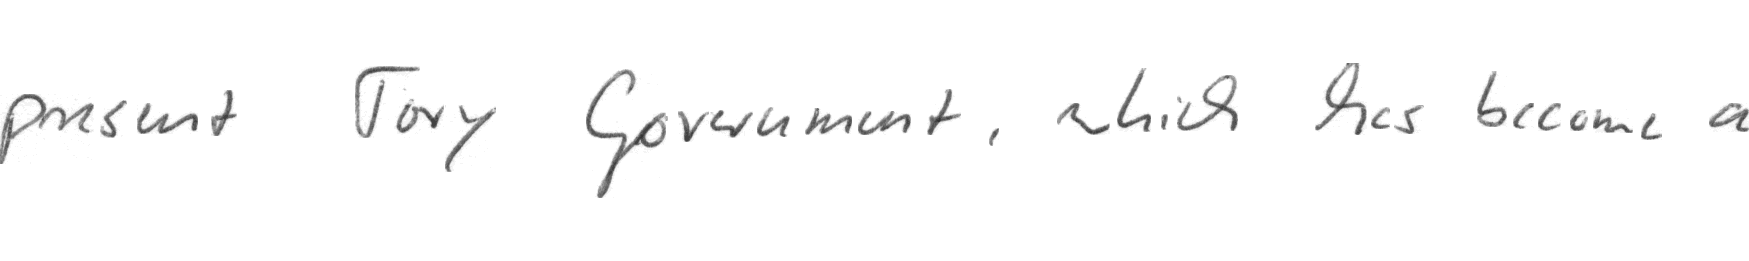 present Tory Government, which has become a